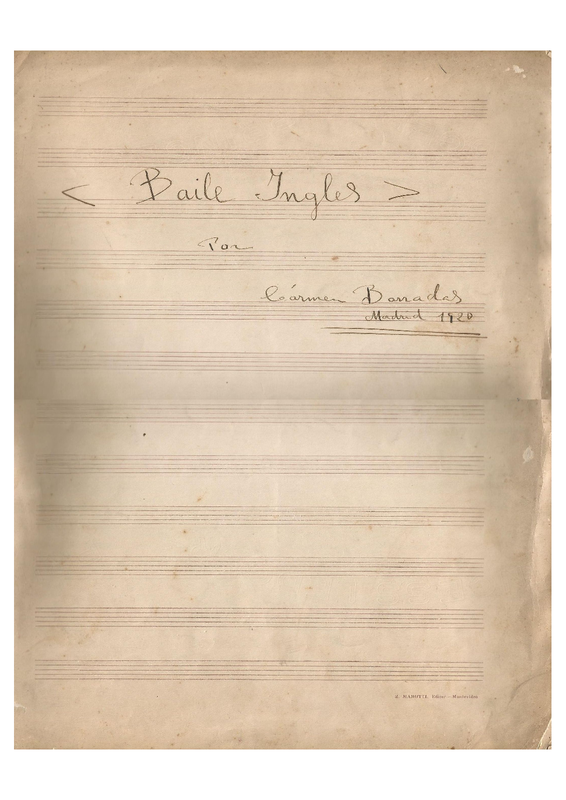 < Baile Ingles >
Por
Cármen Barradas
Madrid 1920
Editor - Montevideo